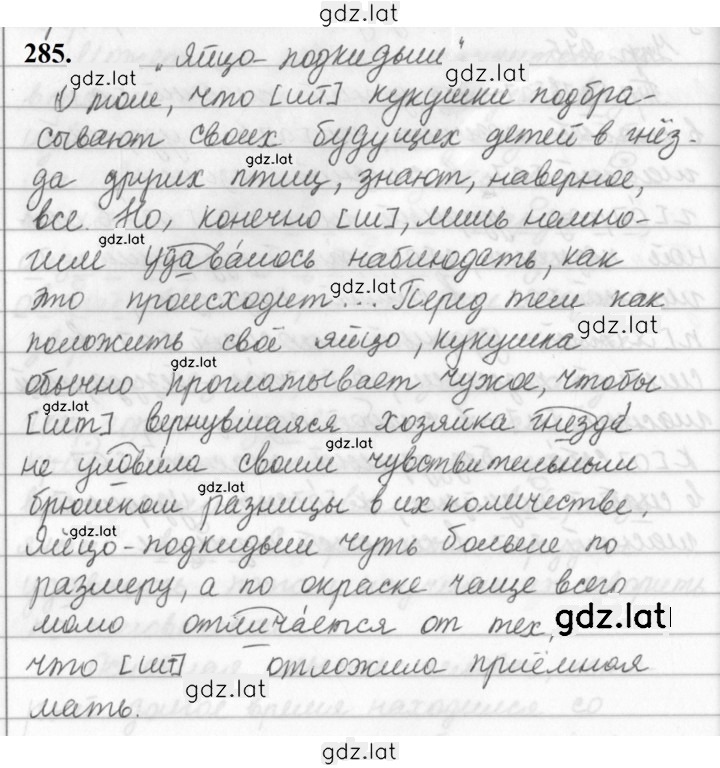 gdz.lat
285. „Яйцо-подкидыш“
gdz.lat gdz.lat
О том, что [шт] кукушки подбра-
сывают своих будущих детей в гнёз-
gdz.lat
да других птиц, знают, наверное,
все. Но, конечно [ш], лишь немно-
gdz.lat
гим удава́лось наблюдать, как
gdz.lat
это происходит... Перед тем как
gdz.lat
положить своё яйцо, кукушка
gdz.lat
обычно проглатывает чужое, чтобы
gdz.lat
[шт] вернувшаяся хозяйка гнезда́
gdz.lat
не улови́ла своим чувствительным
gdz.lat
брюшком разницы в их количестве.
gdz.lat
Яйцо-подкидыш чуть больше по
размеру, а по окраске чаще всего
gdz.lat
мало отлича́ется от тех,
что [шт] отложила приёмная
gdz.lat
мать.
gdz.lat